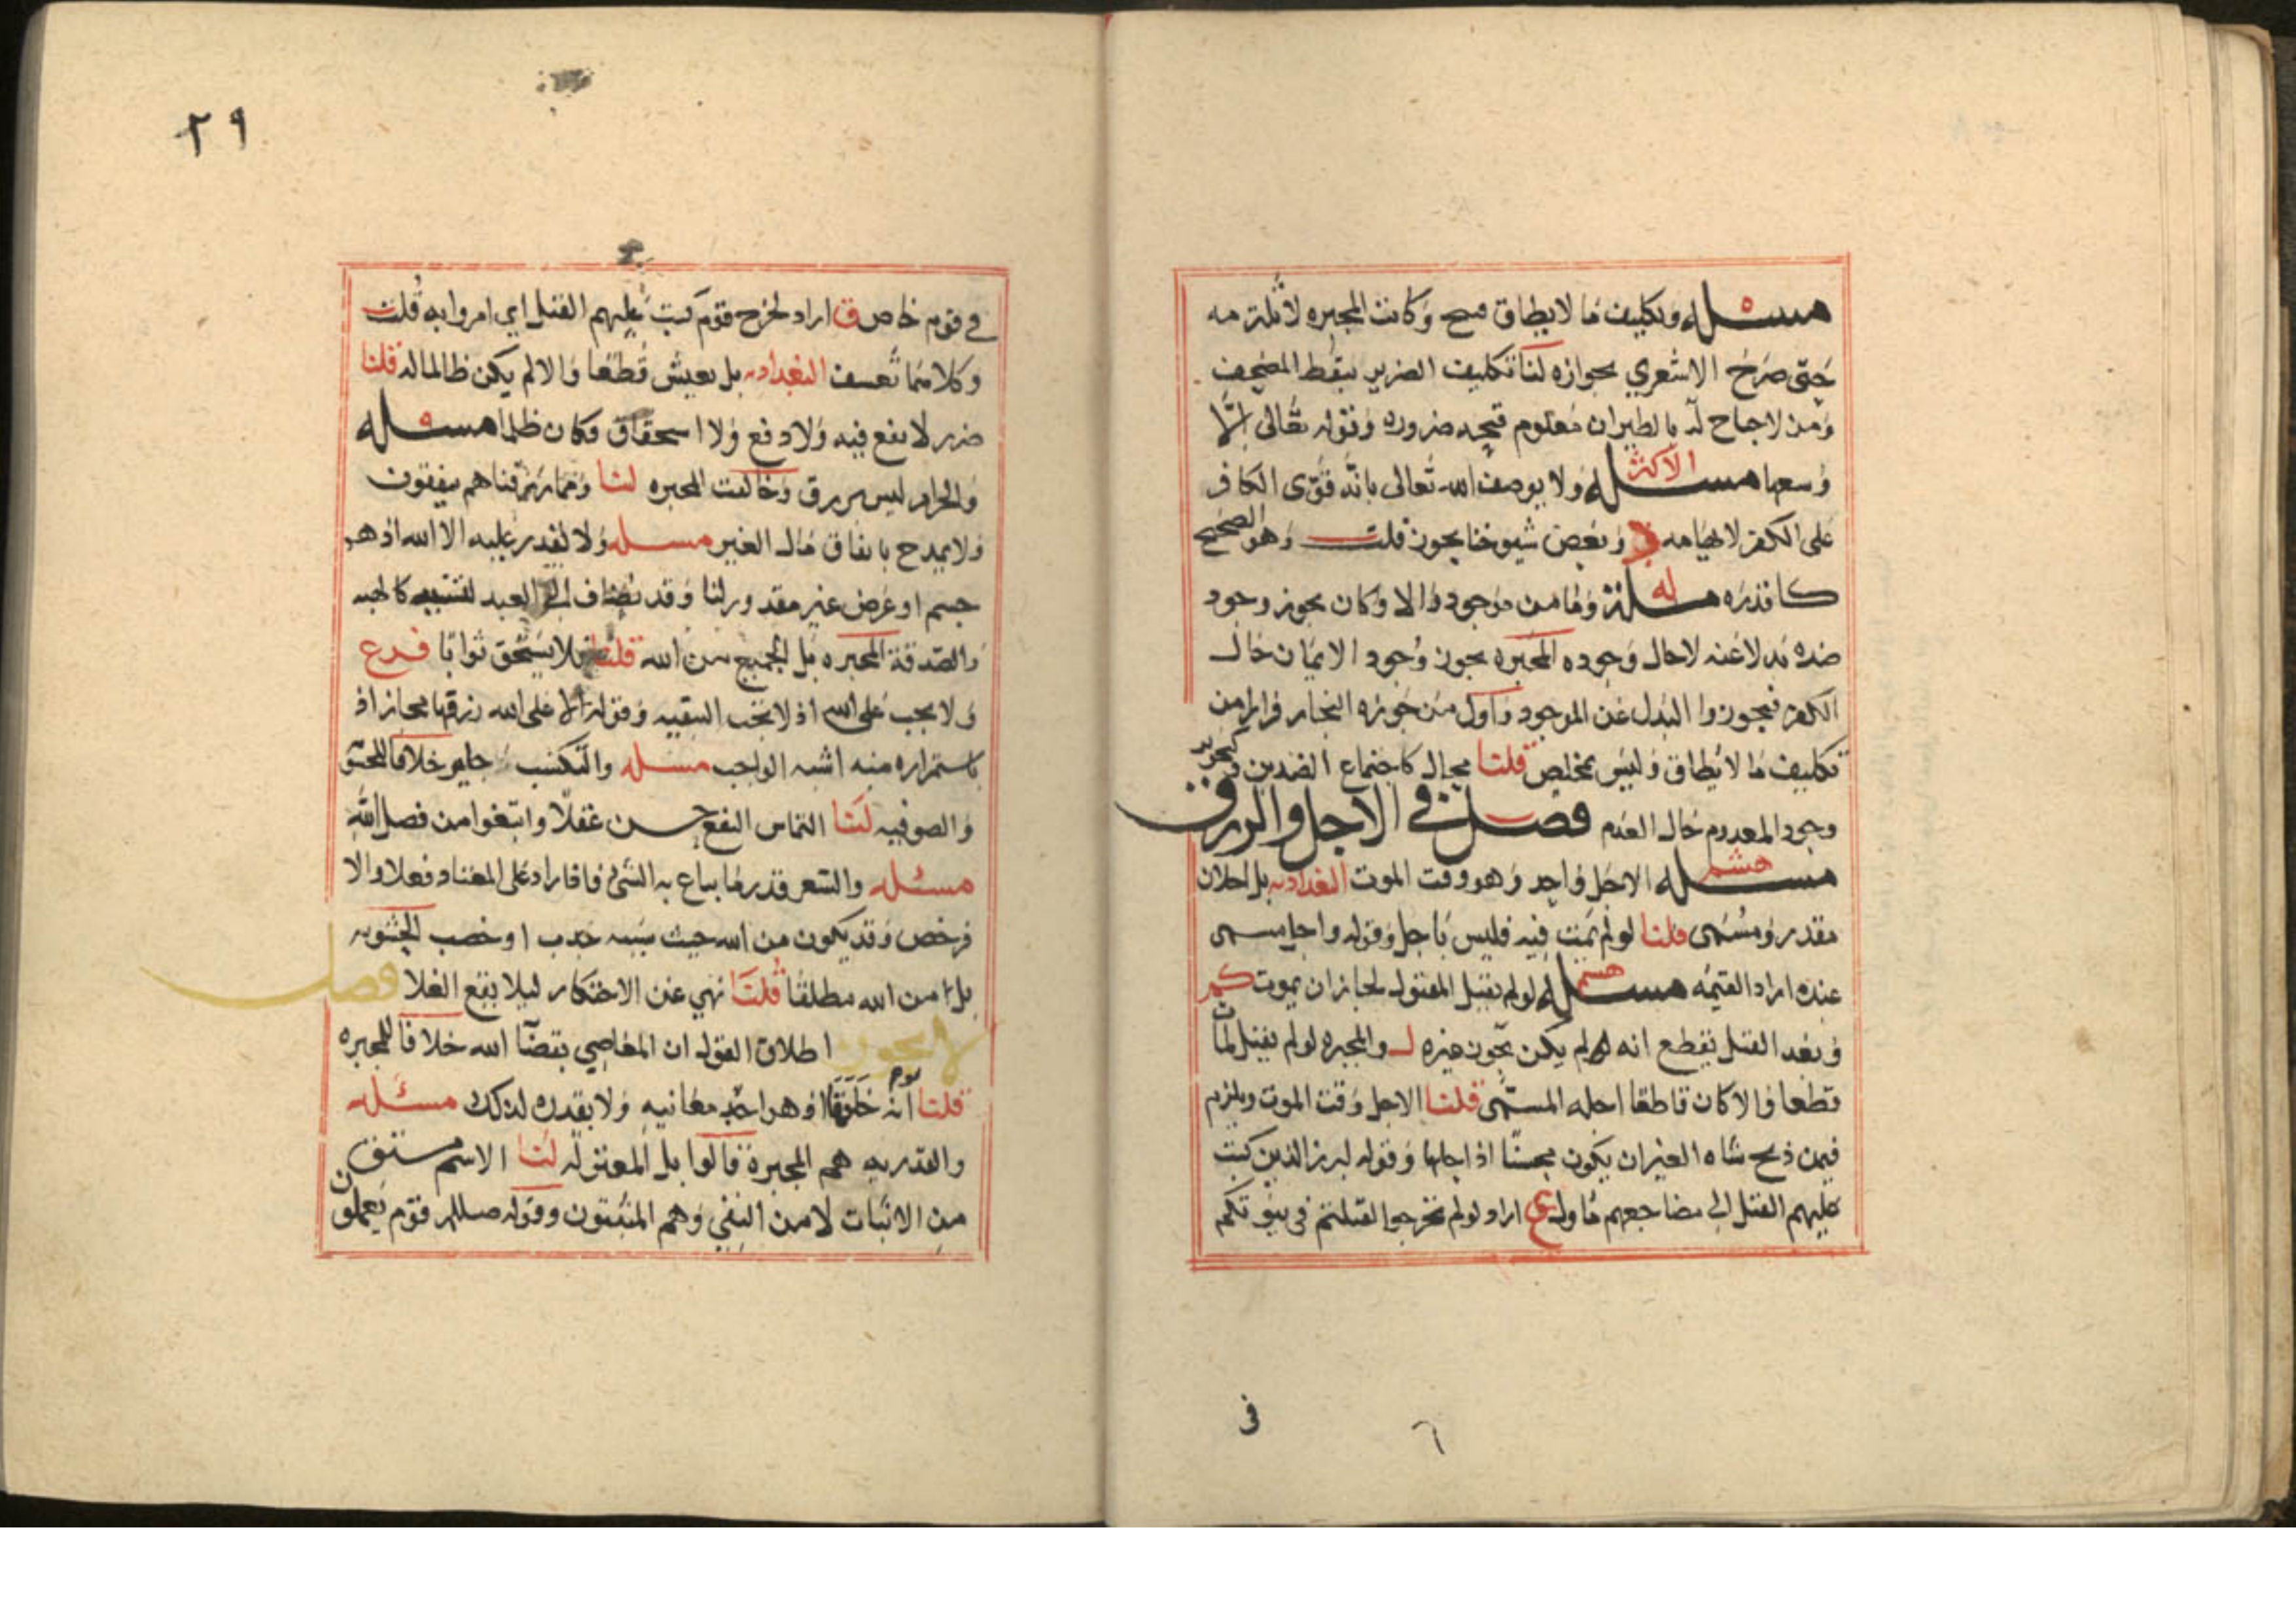 مسئله وتكليف ما لا يطاق قبيح وكانت المجبره لا تلتزمه
حتى صرح الاشعري بجوازه لنا تكليف الضرير بنقط المصحف
ومن لا جناح له بالطيران معلوم قبحه ضروره وقوله تعالى الا
وسعها مسئله الاكثر ولا يوصف الله تعالى بانه قوى الكافر
على الكفر لايهامه وبعض شيوخنا يجوز قلت وهو الصحيح
كا قدره مسئله له وما من موجود الا وكان يجوز وجود
ضده بدلا عنه لا حال وجوده المجبره يجوز وجود الايمان حال
الكفر فجوزوا البدل عن الموجود واول من جوزه النجار فرارا من
تكليف ما لا يطاق وليس بمخلص قلنا محال كاجتماع الضدين وتجويز
وجود المعدوم حال العدم فصل في الاجل والرزق
مسئله هشم الاجل واحد وهو وقت الموت البغداديه بل اجلان
مقدر ومسمى قلنا لو لم يمت فيه فليس باجل وقوله واجل مسمى
عنده اراد القيمه مسئله هشم لو لم يقتل المقتول لجاز ان يموت كم
وبعد القتل نقطع انه لو لم يكن يجوز غيره ل والمجبره لو لم يقتل لمات
قطعا والا كان قاطعا اجله المسمى قلنا الاجل وقت الموت ويلزم
فيمن ذبح شاه الغير ان يكون محسنا اذ احلها وقوله لبرز الذين كتب
عليهم القتل الى مضاجعهم متاول ع اراد لو لم تخرجوا لقتلتم في بيوتكم
في
٢٩
في قوم خاص ق اراد لخرج قوم كتب عليهم القتل اي امروا به قلت
وكلاهما تعسف البغداديه بل يعيش قطعا والا لم يكن ظالما له قلنا
ضرر لا نفع فيه ولا دفع ولا استحقاق فكان ظلما مسئله
والحرام ليس برزق وخالفت المجبره لنا ومما رزقناهم ينفقون
ولا يمدح بانفاق مال الغير مسئله ولا يقدر عليه الا الله اذ هو
جسم او عرض غير مقدور لنا وقد يضاف الى العبد لتسببه كالهبه
والصدقة المجبره بل الجميع من الله قلنا فلا يستحق ثوابا فرع
ولا يجب على الله اذ لا تجب التبقيه وقوله الا على الله رزقها مجاز اذ
باستمراره منه اشبه الواجب مسئله والتكسب جايز خلافا للحشو
والصوفيه لنا التماس النفع حسن عقلا وابتغوا من فضل الله
مسئله والسعر قدر ما يباع به الشئ فان زاد على المعتاد فغلا والا
فرخص وقد يكون من الله حيث سببه جدب او خصب الحشويه
بل من الله مطلقا قلنا نهي عن الاحتكار ليلا يقع الغلا فصل
لا يجوز اطلاق القول ان المعاصي بقضا الله خلافا للمجبره
قلنا يوهم انه خلقها اذ هو احد معانيه ولا بقدره لذلك مسئله
والقدريه هم المجبرة قالوا بل المعتزله لنا الاسم مشتق
من الاثبات لا من النفي وهم المثبتون وقوله صللم قوم يعملون